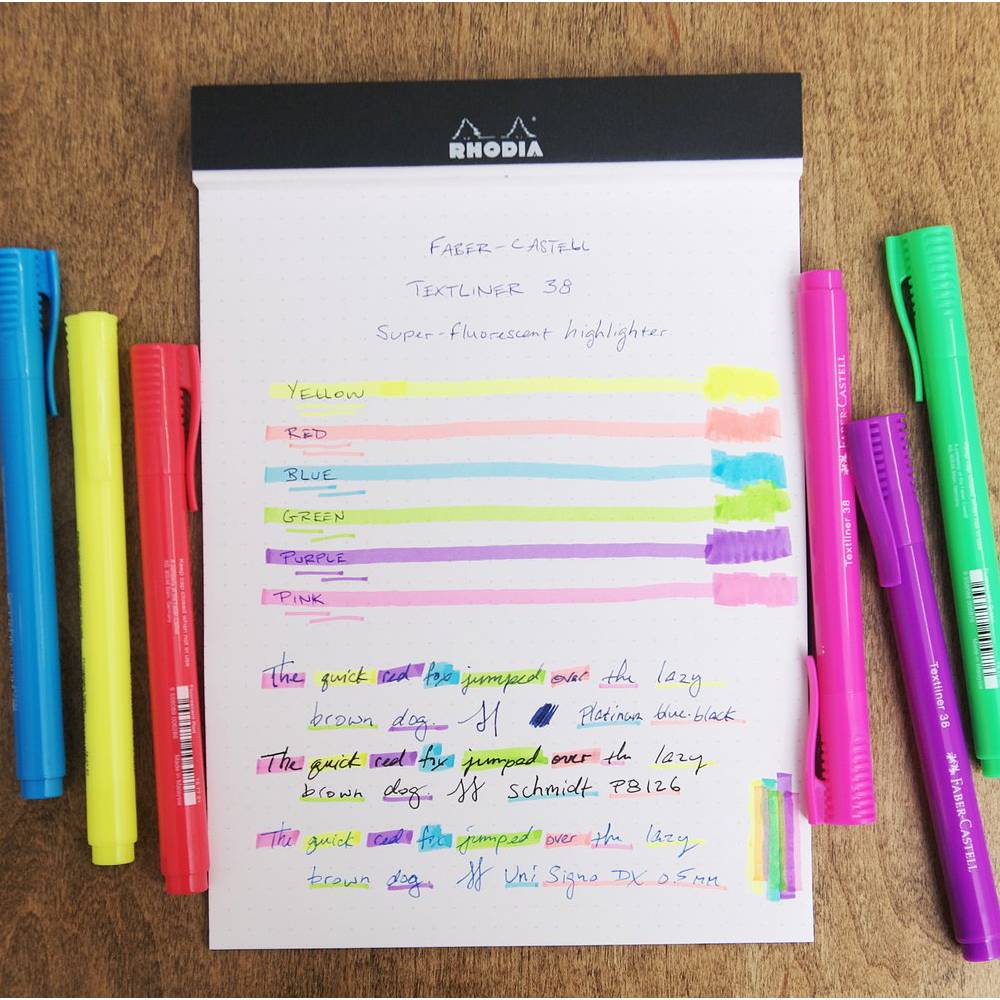 RHODIA
FABER-CASTELL
TEXTLINER 38
Super-fluorescent highlighter
YELLOW
RED
BLUE
GREEN
PURPLE
PINK
The quick red fox jumped over the lazy
brown dog. Platinum blue-black
The quick red fox jumped over the lazy
brown dog. Schmidt P8126
The quick red fox jumped over the lazy
brown dog. Uni Signo DX 0.5MM
Keep cap closed when not in use
Textliner 38 FABER-CASTELL
Textliner 38 FABER-CASTELL